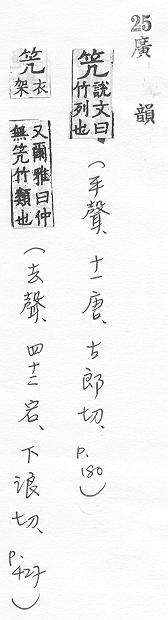 25廣韻
笐 說文曰竹列也 (平聲、十一唐、古郎切、p.180)
笐 衣架 又爾雅曰仲無笐竹類也 (去聲、四十二宕、下浪切、p.427)